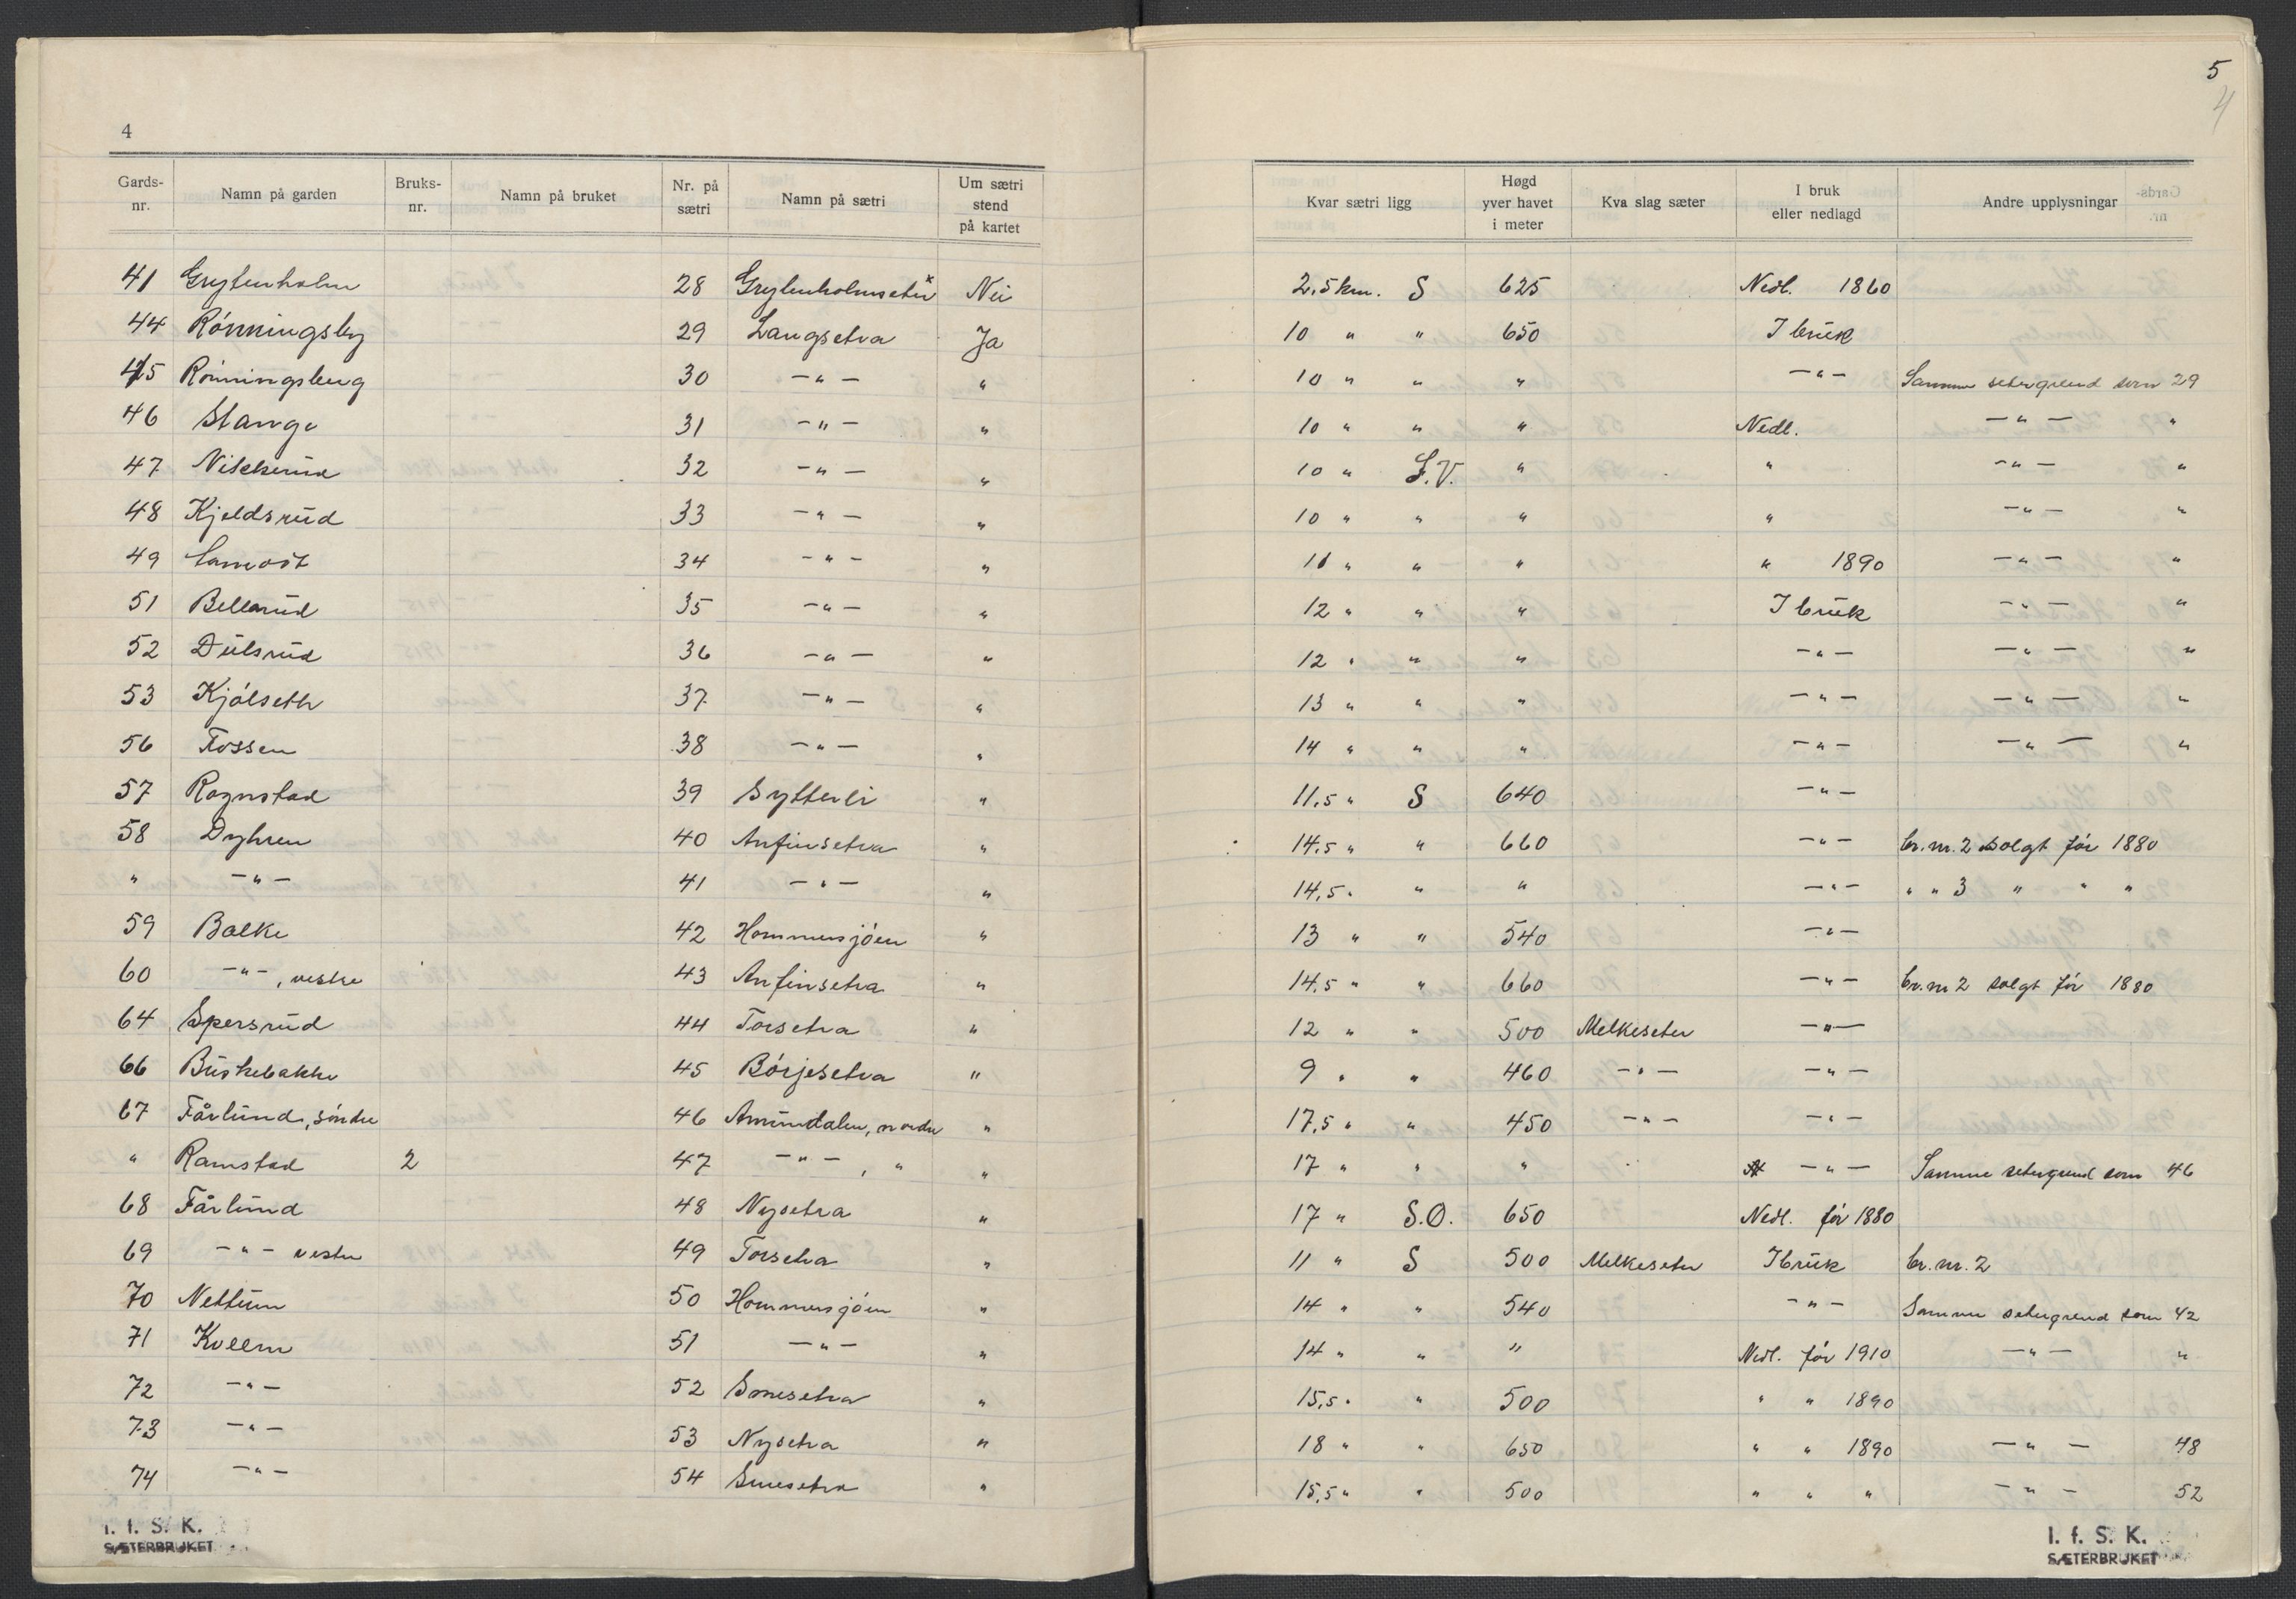 4
Gards-nr. Namn på garden Bruks-nr. Namn på bruket Nr. på sætri Namn på sætri Um sætri stend på kartet
41 Grytenholm 28 Grytenholmseter* Nei
44 Rönningsby 29 Langsetra Ja
45 Rönningsberg 30 -"- "
46 Stange 31 -"- "
47 32 -"- "
48 Kjeldsrud 33 -"- "
49 34 -"- "
51 Bellerud 35 -"- "
52 Dulsrud 36 -"- "
53 Kjölseth 37 -"- "
56 Fossen 38 -"- "
57 Rognstad 39 Sytterli "
58 Dyhren 40 Anfinsetra "
" -"- 41 -"- "
59 Balke 42 Hommersjöen "
60 -"-, vestre 43 Anfinsetra "
64 Spersrud 44 Torsetra "
66 Buskebakke 45 Börjesetra "
67 Fårlund, söndre 46 Amundalen, nordre "
" Ramstad 2 47 -"-, " "
68 Fårlund 48 Nysetra "
69 -"- vestre 49 Torsetra "
70 Nettum 50 Hommersjöen "
71 Kvern 51 -"- "
72 -"- 52 Smesetra "
73 -"- 53 Nysetra "
74 -"- 54 Smesetra "
I. f. S. K.
SÆTERBRUKET
5
4
Kvar sætri ligg Høgd yver havet i meter Kva slag sæter I bruk eller nedlagd Andre upplysningar
2,5 km. S 625 Nedl. 1860
10 " " 650 I bruk
10 " " " -"- Samme setergrend som 29
10 " " " Nedl. -"- "
10 " S.V. " " -"- "
10 " " " " -"- "
11 " " " " 1890 -"- "
12 " " " I bruk -"- "
12 " " " -"- -"- "
13 " " " -"- -"- "
14 " " " -"- -"- "
11,5 " S 640 -"-
14,5 " " 660 -"- br.nr. 2 solgt för 1880
14,5 " " " -"- " " 3 " " "
13 " " 540 -"-
14,5 " " 660 -"- br.nr 2 solgt för 1880
12 " " 500 Melkeseter -"-
9 " " 460 -"- -"-
17,5 " " 450 -"- -"-
17 " " " -"- Samme setergrend som 46
17 " S.O. 650 Nedl. för 1880
11 " S 500 Melkeseter I bruk br.nr. 2
14 " " 540 -"- Samme setergrend som 42
14 " " " Nedl. för 1910 -"- "
15,5 " " 500 " " 1890
18 " " 650 " " 1890 -"- 48
15,5 " " 500 " " " -"- 52
I. f. S. K.
SÆTERBRUKET